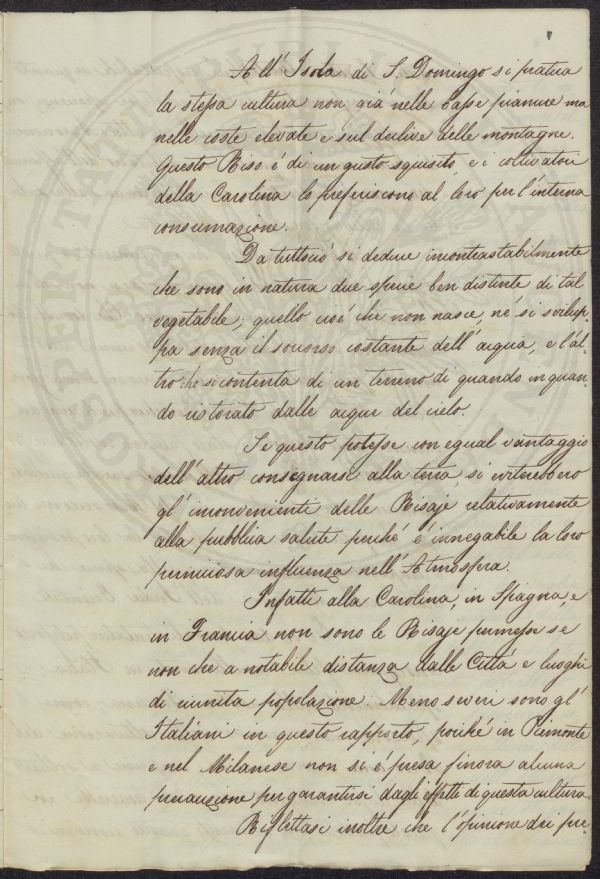 All' Isola di S. Domingo si pratica
la stessa cultura non già nelle basse pianure ma
nelle coste elevate e sul declive delle montagne.
Questo Riso è di un gusto squisito, e i coltivatori
della Carolina lo preferiscono al loro per l'interna
consumazione.
Da tuttociò si deduce incontrastabilmente
che sono in natura due specie ben distinte di tal
vegetabile; quello cioè che non nasce, né si svilup-
pa senza il soccorso costante dell' acqua, e l'al-
tro che si contenta di un terreno di quando in quan-
do ristorato dalle acque del cielo.
Se questo potesse con egual vantaggio
dell' altro consegnarsi alla terra si eviterebbero
gl' inconvenienti delle Risaje relativamente
alla pubblica salute perché è innegabile la loro
perniciosa influenza nell' Atmosfera.
Infatti alla Carolina, in Spagna, e
in Francia non sono le Risaje permesse se
non che a notabile distanza dalle Città e luoghi
di riunita popolazione. Meno severi sono gl'
Italiani in questo rapporto, poiché in Piemonte
e nel Milanese non si è presa finora alcuna
precauzione per garantirsi dagli effetti di questa cultura.
Riflettasi inoltre che l'opinione dei pre-